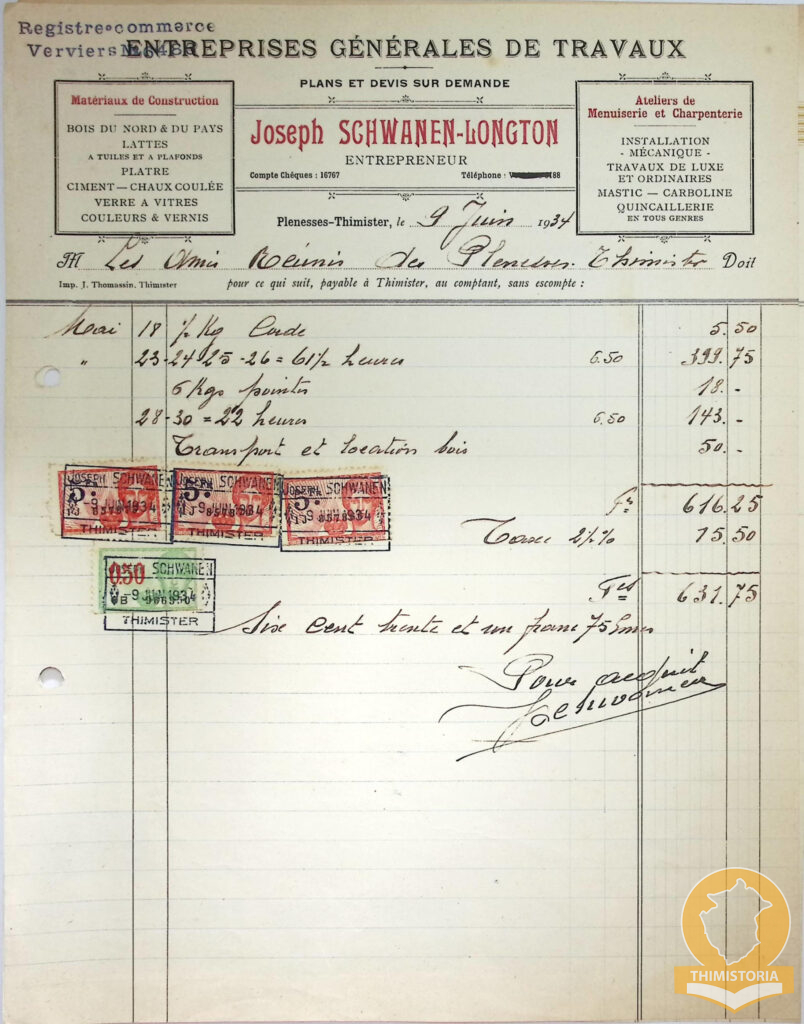 Registre commerce
Verviers
ENTREPRISES GÉNÉRALES DE TRAVAUX
PLANS ET DEVIS SUR DEMANDE
Matériaux de Construction
BOIS DU NORD & DU PAYS
LATTES
A TUILES ET A PLAFONDS
PLATRE
CIMENT — CHAUX COULÉE
VERRE A VITRES
COULEURS & VERNIS
Joseph SCHWANEN-LONGTON
ENTREPRENEUR
Compte Chèques : 16767 Téléphone : 88
Ateliers de
Menuiserie et Charpenterie
INSTALLATION
- MÉCANIQUE -
TRAVAUX DE LUXE
ET ORDINAIRES
MASTIC — CARBOLINE
QUINCAILLERIE
EN TOUS GENRES
Plenesses-Thimister, le 9 Juin 1934
M Les Amis Réunis des Plenesses Thimister Doit
Imp. J. Thomassin, Thimister
pour ce qui suit, payable à Thimister, au comptant, sans escompte :
Mai 18 ½ Kg Corde 5.50
" 23-24 25-26 = 61½ heures 6.50 399.75
6 Kgs pointes 18.-
28-30 = 22 heures 6.50 143.-
Transport et location bois 50.-
JOSEPH SCHWANEN JOSEPH SCHWANEN JOSEPH SCHWANEN
5. 5. 5.
-9 JUIN 1934 -9 JUIN 1934 -9 JUIN 1934
THIMISTER THIMISTER THIMISTER
Fr 616.25
Taxe 2½% 15.50
JOSEPH SCHWANEN
0.50
-9 JUIN 1934
THIMISTER
Frs 631.75
Six cent trente et un franc 75 Cmes
Pour acquit
Schwanen
THIMISTORIA